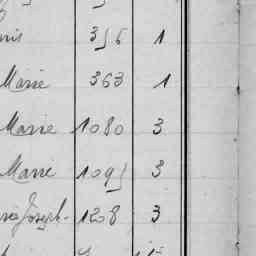 356 1
Marie 363 1
Marie 1080 3
Marie 1095 3
Joseph. 1208 3